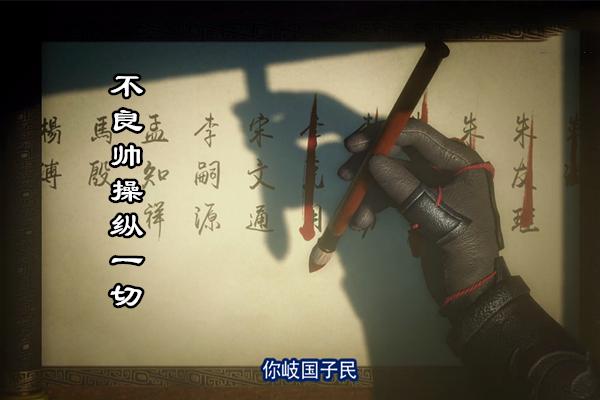 不良帅操纵一切
朱友珪
朱
李克用
宋文通
李嗣源
孟知祥
馬殷
楊溥
你岐国子民